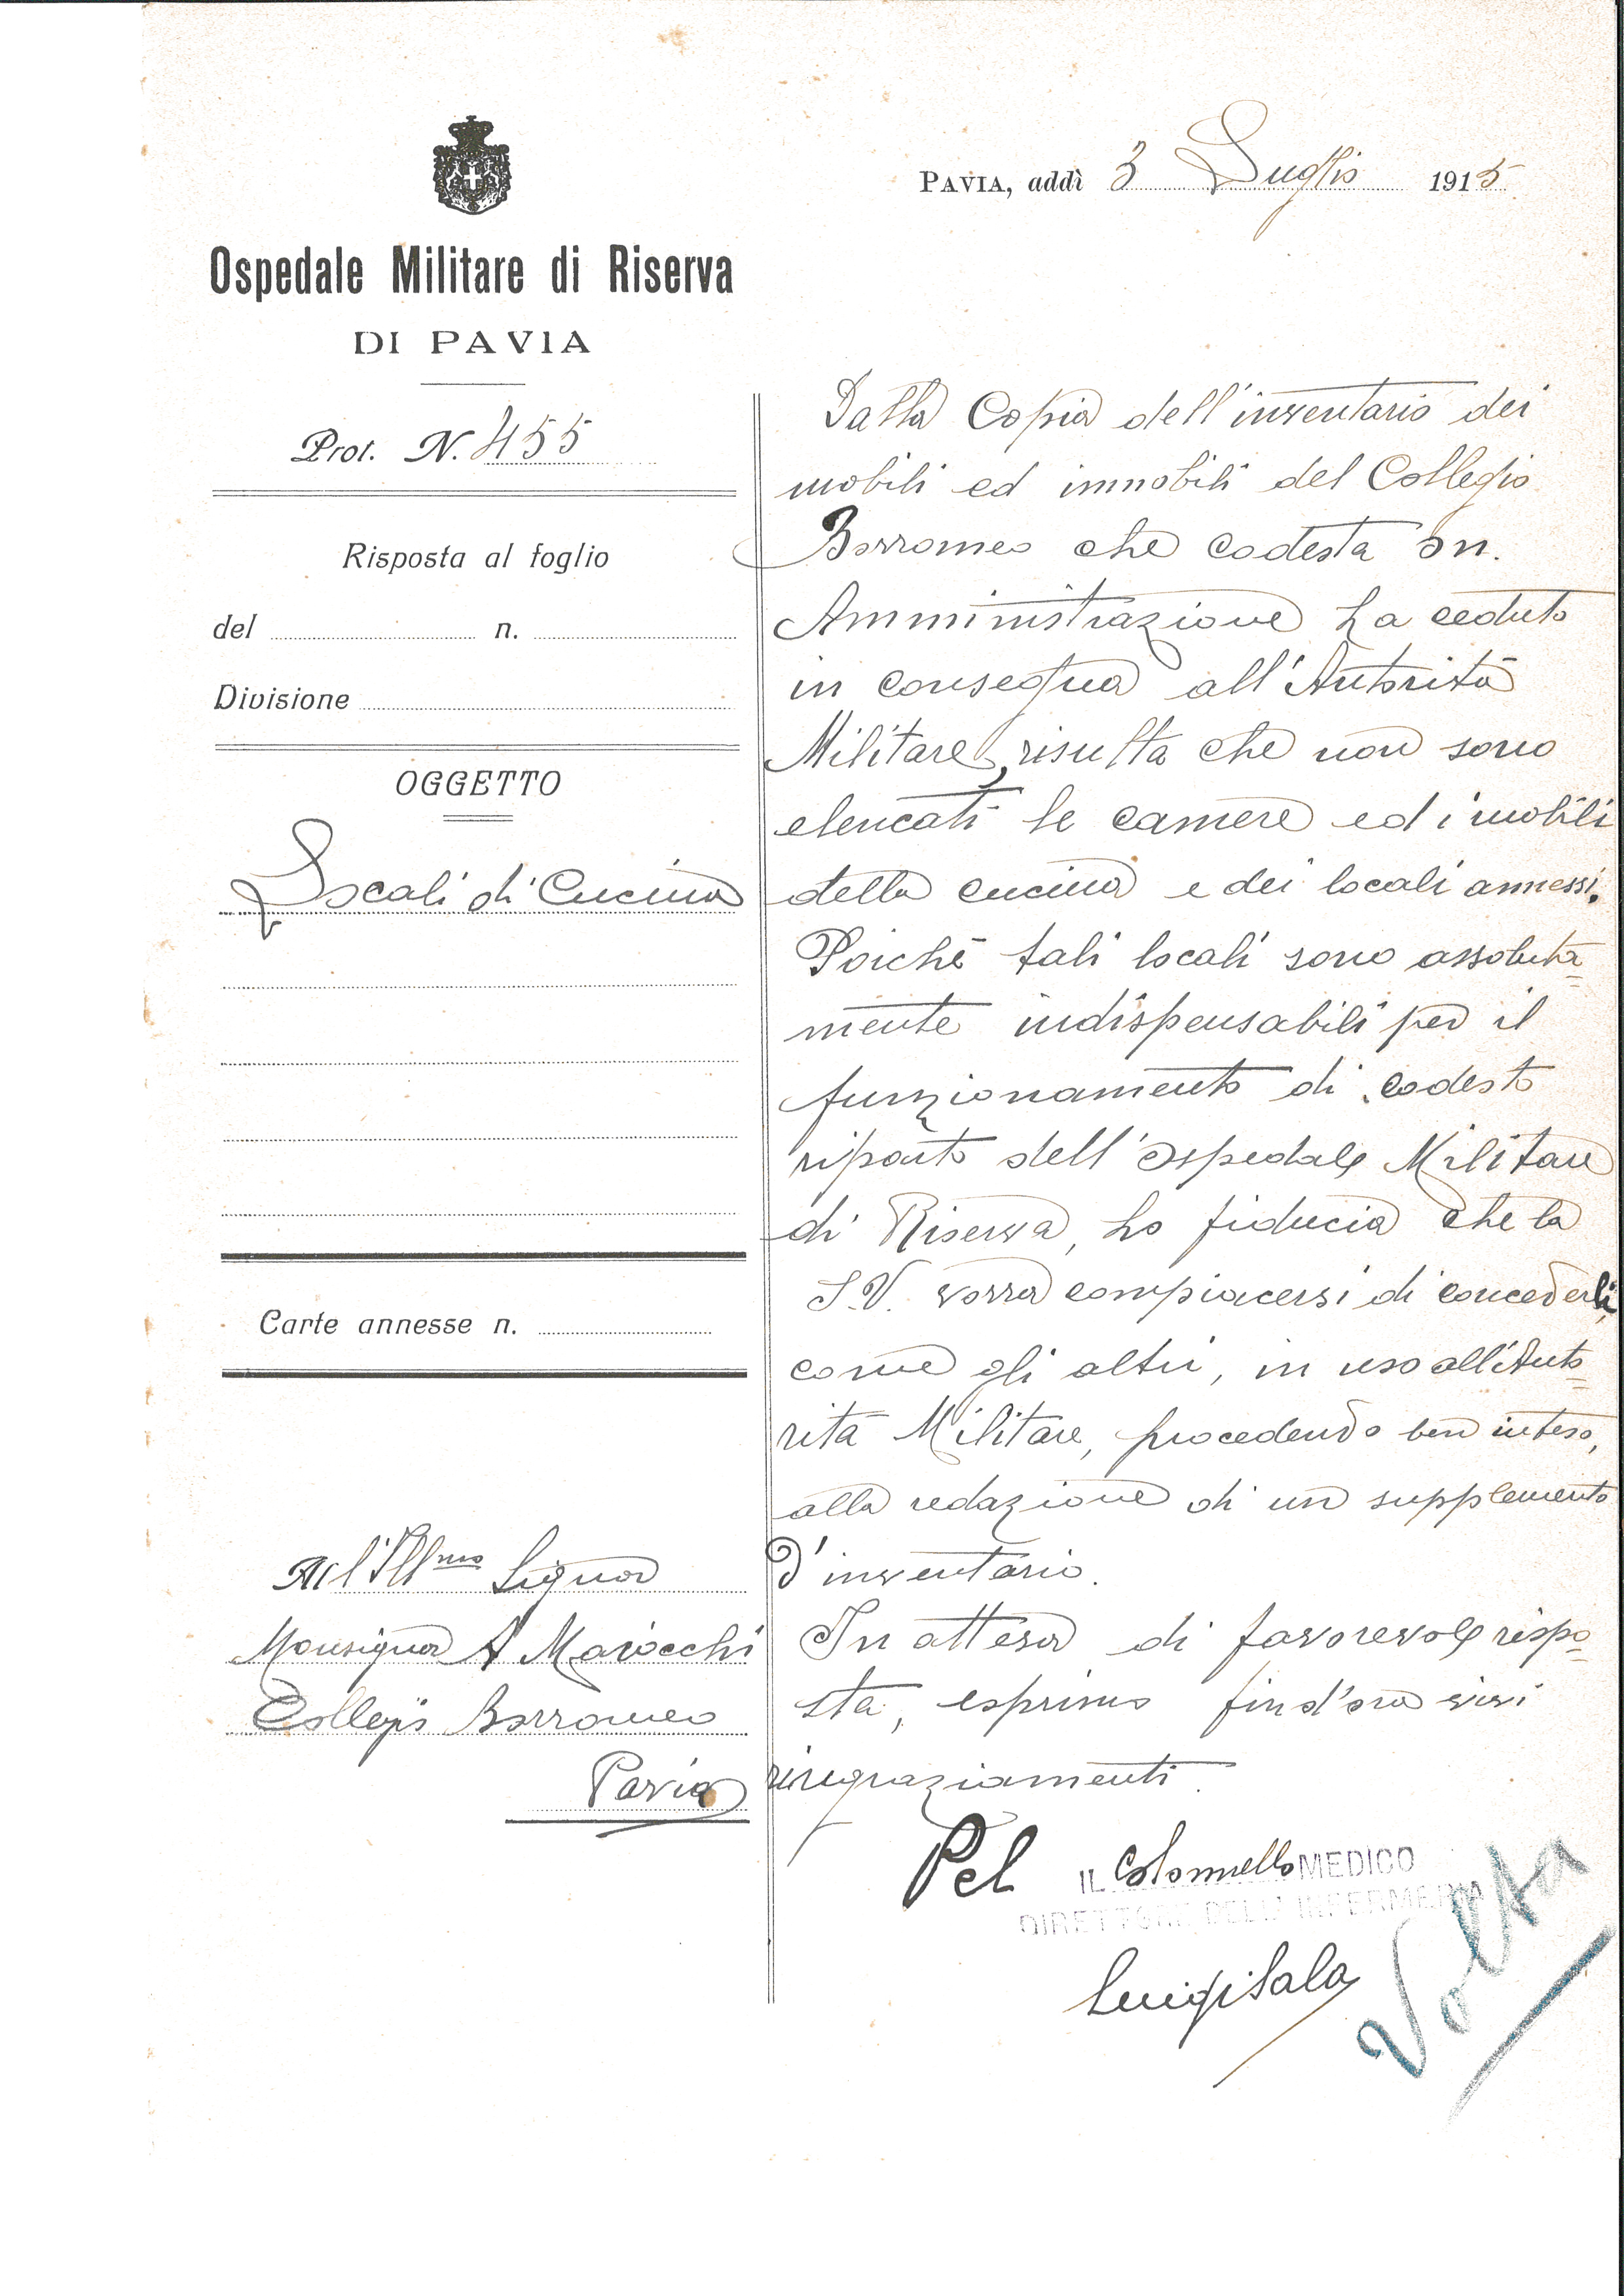 Pavia, addì 3 Luglio 1915
Ospedale Militare di Riserva
DI PAVIA
Prot. N. 455
Risposta al foglio
del n.
Divisione
OGGETTO
Locali di Cucina
Carte annesse n.
All'Ill.mo Signor
Monsignor A Maiocchi
Collegio Borromeo
Pavia
Dalla Copia dell'inventario dei
mobili ed immobili del Collegio
Borromeo che codesta On.
Amministrazione ha ceduto
in consegna all'Autorità
Militare, risulta che non sono
elencati le camere ed i mobili
della cucina e dei locali annessi.
Poichè tali locali sono assoluta=
mente indispensabili per il
funzionamento di codesto
riparto dell'Ospedale Militare
di Riserva, ho fiducia che la
S.V. vorrà compiacersi di concederli,
come gli altri, in uso all'Auto=
rità Militare, procedendo ben inteso,
alla redazione di un supplemento
d'inventario.
In attesa di favorevole rispo=
sta, esprimo fin d'ora vivi
ringraziamenti.
Pel IL Colonnello MEDICO
DIRETTORE DELL'INFERMERIA
Luigi Sala
Volta